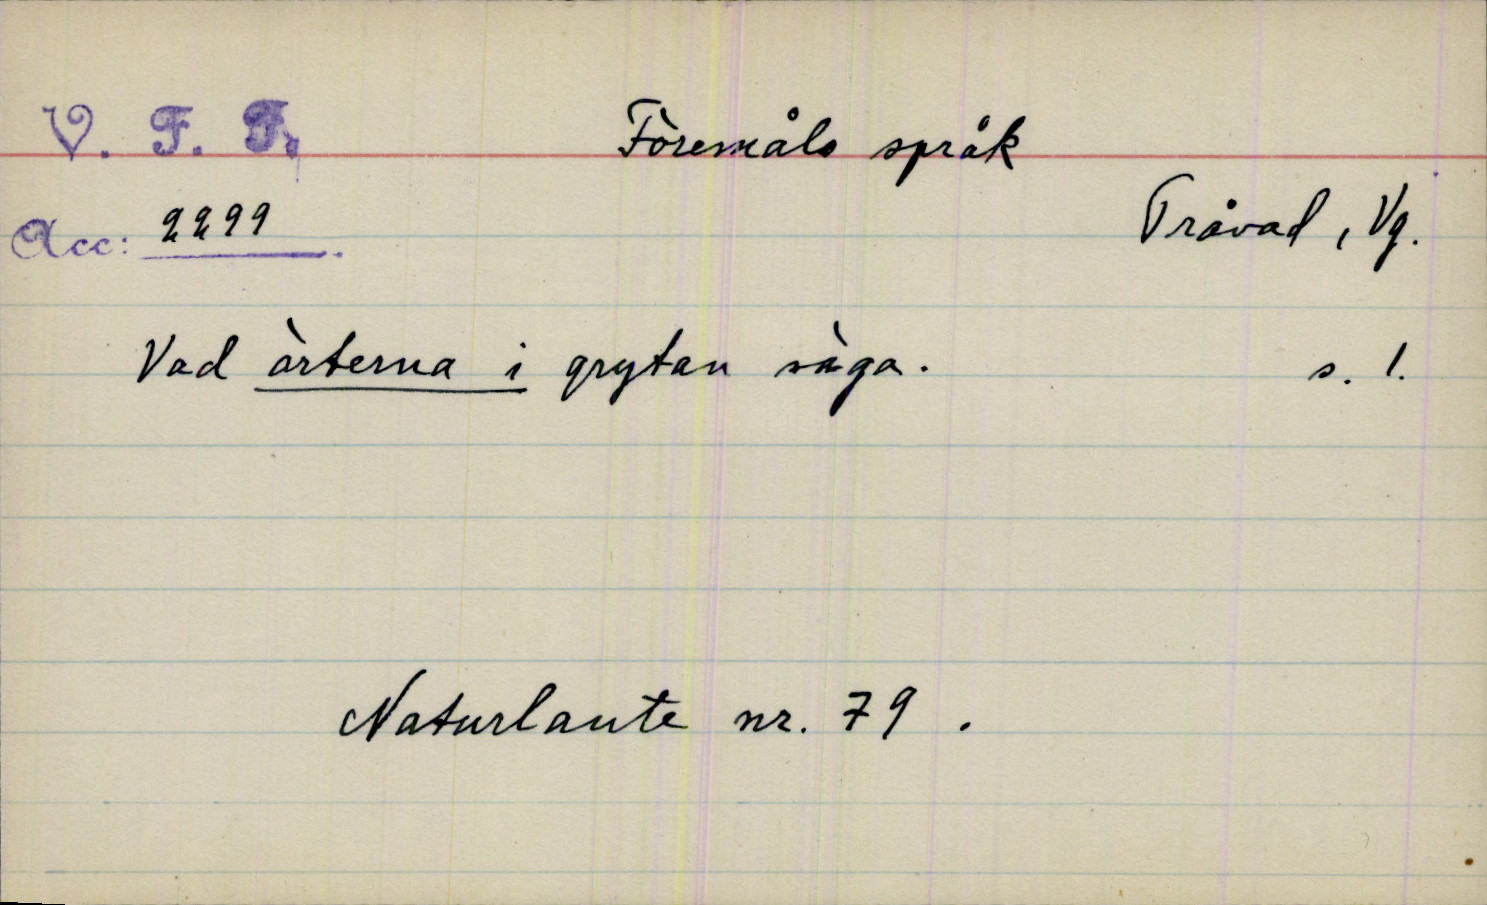 V. F. F. Föremåls språk
Acc: 2299 Tråvad, Vg.
Vad ärterna i grytan säga. s. 1.
Naturlaute nr. 79.